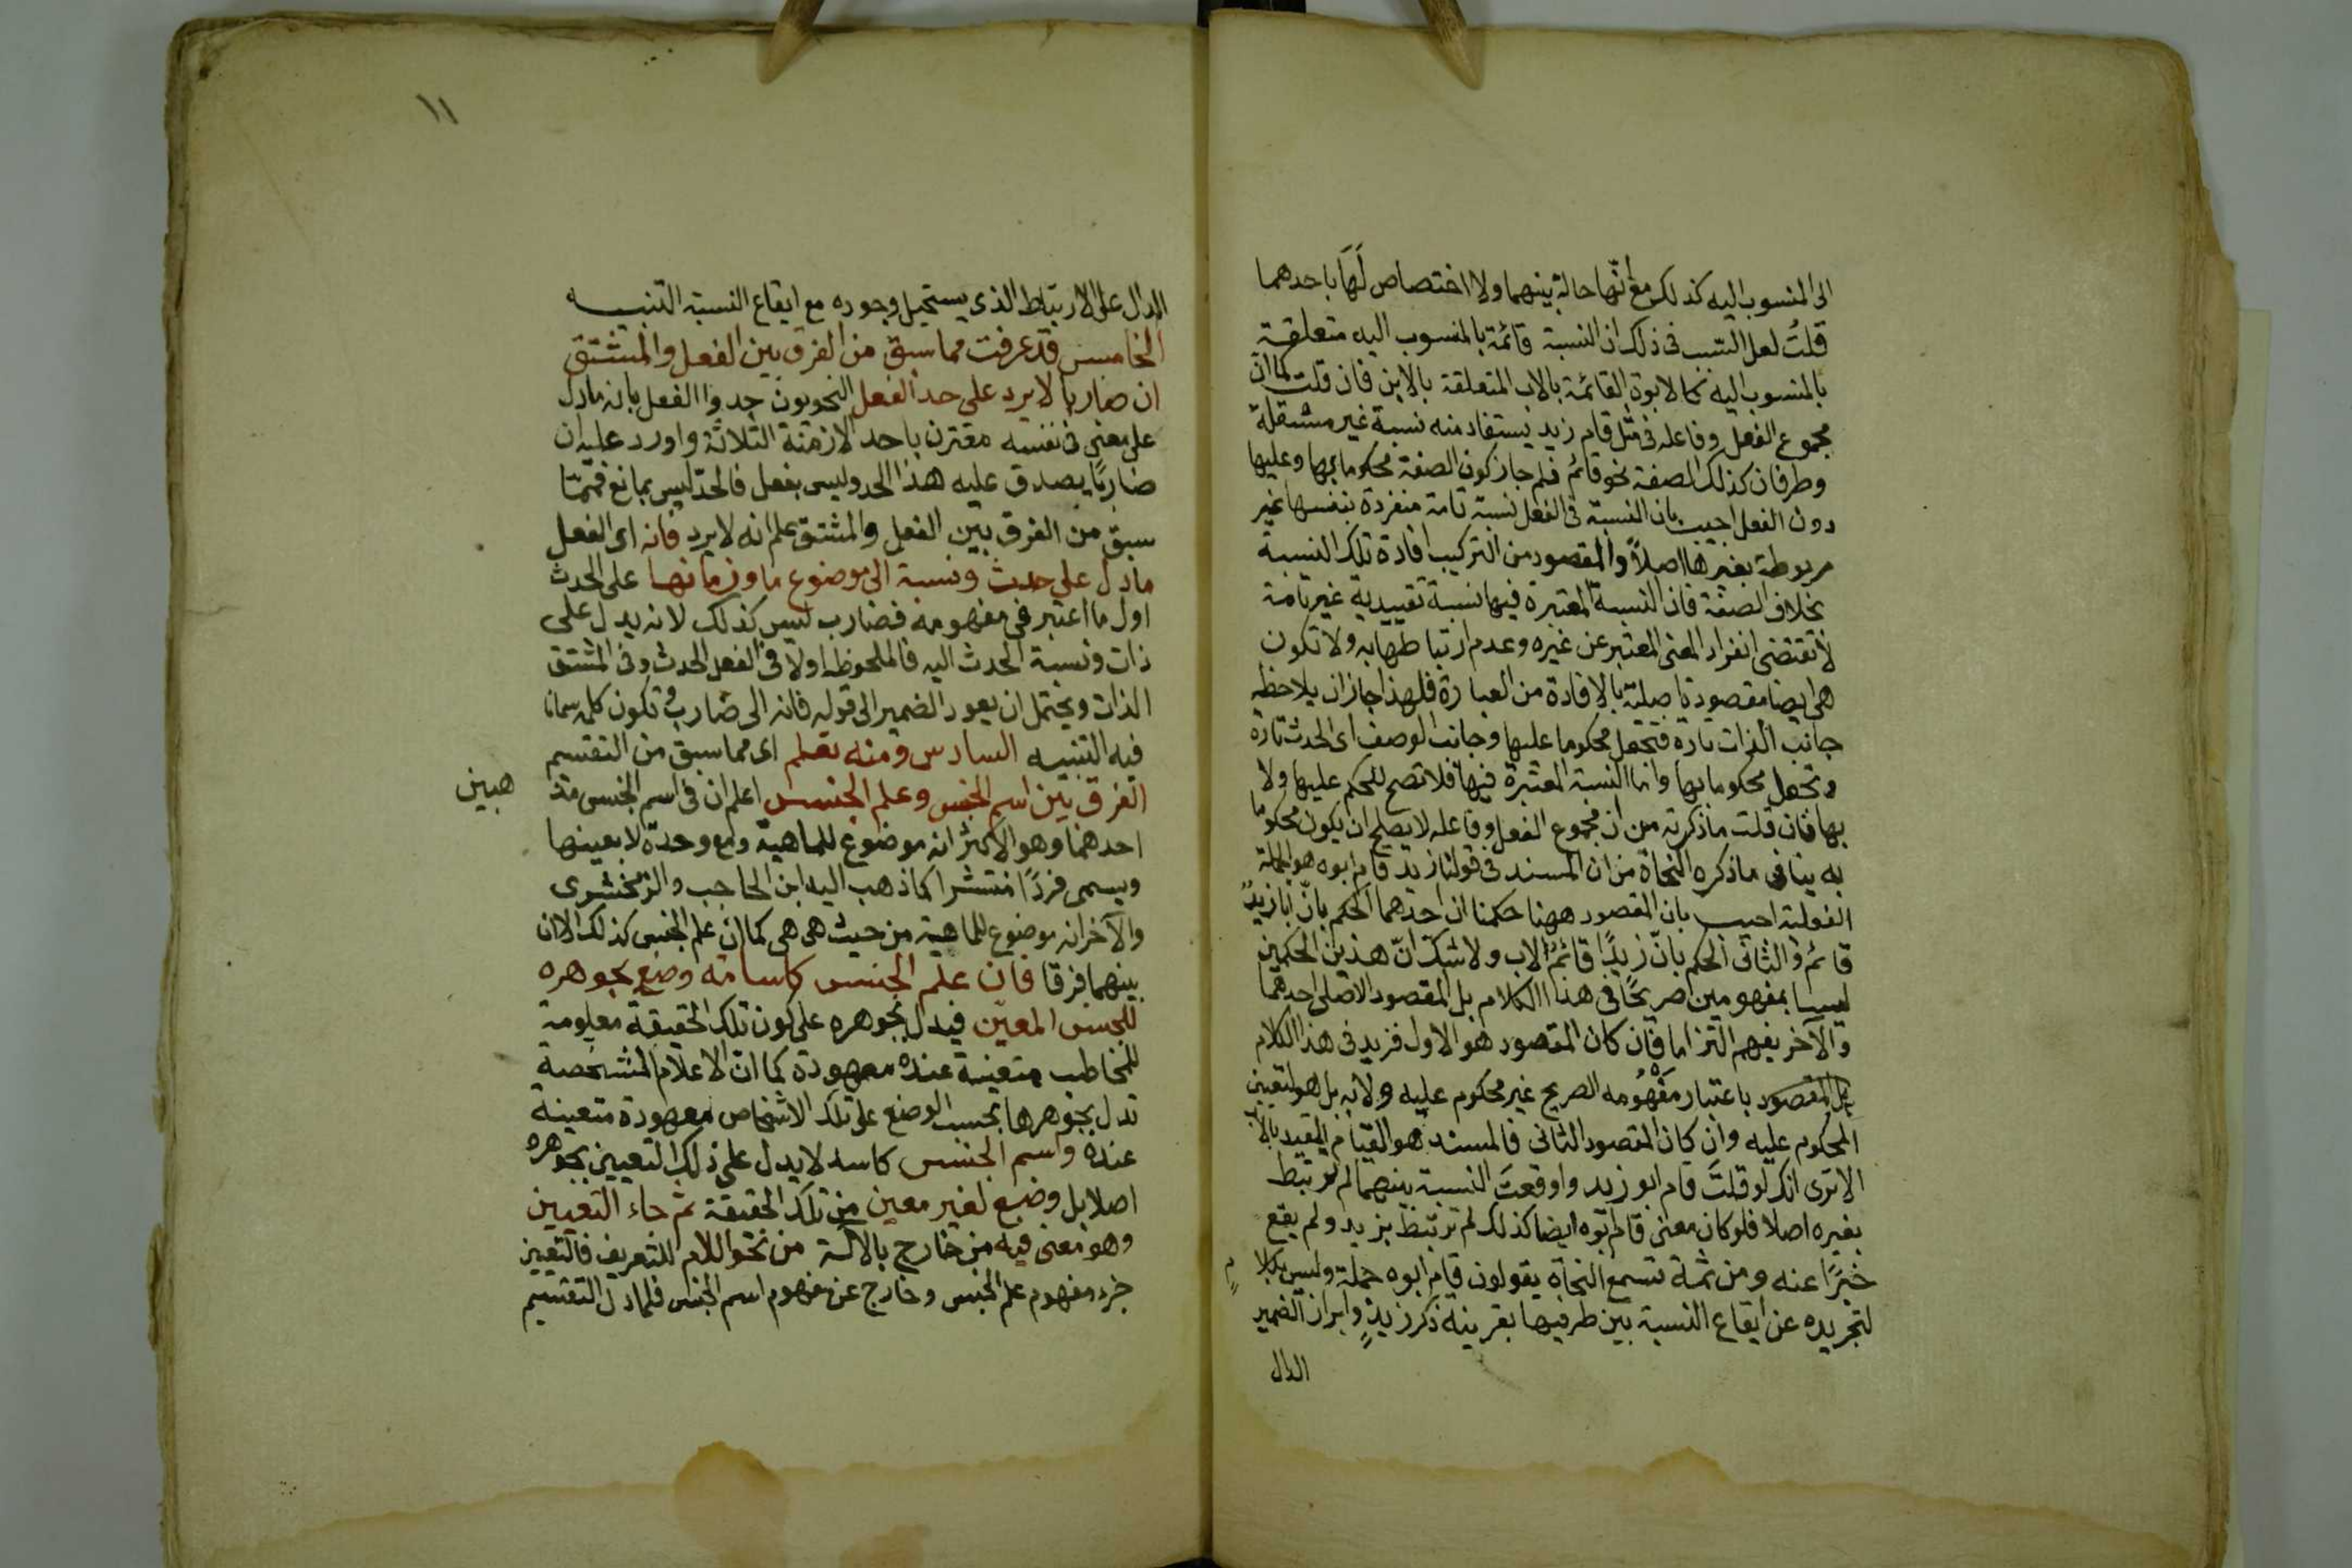 الى المنسوب اليه كذلك مع انّها حالة بينهما ولا اختصاص لَهَا باحدهما
قلتُ لعل السبب فى ذلك ان النسبة قائمة بالمنسوب اليه متعلقة
بالمنسوب اليه كالابوة القائمة بالاب المتعلقة بالابن فان قلت كما انّ
مجموع الفعل وفاعله فى مثل قام زيد يستفاد منه نسبة غير مستقلة
وطرفان كذلك الصفة نحو قائم فلم جاز كون الصفة محكوما بها وعليها
دون الفعل اجيب بان النسبة فى الفعل نسبة تامة منفردة بنفسها غير
مربوطة بغيرها اصلاً والمقصود من التركيب افادة تلك النسبة
بخلاف الصفة فان النسبة المعتبرة فيها نسبة تقييدية غير تامة
لا تقتضى انفراد المعنى المعتبر عن غيره وعدم ارتباطها به ولا تكون
هى ايضا مقصودة اصلية بالافادة من العبارة فلهذا جاز ان يلاحظ
جانب الذات تارة فتجعل محكوما عليها وجانب الوصف اى الحدث تارة
وتجعل محكوما بها واما النسبة المعتبرة فيها فلا تصح للحكم عليها ولا
بها فان قلت ما ذكرته من ان مجموع الفعل وفاعله لا يصلح ان يكون محكوما
به ينافى ما ذكره النحاة من ان المسند فى قولنا زيد قام ابوه هو الجملة
الفعلية اجيب بان المقصود ههنا حكمان احدهما الحكم بانّ ابا زيدٍ
قائم والثانى الحكم بانّ زيدًا قائمُ الاب ولا شك انّ هذين الحكمين
ليسا بمفهومين صريحًا فى هذا الكلام بل المقصود الاصلى احدهما
والآخر يفهم التزاما فان كان المقصود هو الاول فزيد فى هذا الكلام
بل المقصود باعتبار مَفْهُومه الصريح غير محكوم عليه ولا به بل هو لتعيين
المحكوم عليه وان كان المقصود الثانى فالمسند هو القيام المقيد بالاب
الا ترى انك لو قلتَ قام ابو زيد واوقعتَ النسبة بينهما لم يرتبط
بغيره اصلا فلو كان معنى قام ابوه ايضا كذلك لم ترتبط بزيد ولم يقع
خبرًا عنه ومن ثمة تسمع النحاة يقولون قام ابوه جملة وليس بكلام
لتجريده عن ايقاع النسبة بين طرفيها بقرينة ذكر زيدٍ وايراز الضمير
الدال
١١
الدال على الارتباط الذى يستحيل وجوده مع ايقاع النسبة التنبيه
الخامس قد عرفت مما سبق من الفرق بين الفعل والمشتق
ان ضاربا لا يرد على حد الفعل النحويون حدوا الفعل بانه ما دل
على معنى فى نفسه مقترن باحد الازمنة الثلاثة واورد عليه ان
ضاربًا يصدق عليه هذا الحد وليس بفعل فالحدّ ليس بمانع فممّا
سبق من الفرق بين الفعل والمشتق علم انه لا يرد فانه اى الفعل
ما دل على حدث ونسبة الى موضوع ما وزمانها على الحدث
اول ما اعتبر فى مفهومه فضارب ليس كذلك لانه يدل على
ذات ونسبة الحدث اليه فالملحوظ اولا فى الفعل الحدث وفى المشتق
الذات ويحتمل ان يعود الضمير الى قوله فانه الى ضارب وتكون كلمة
فيه التنبيه السادس ومنه تعلم اى مما سبق من التقسيم
الفرق بين اسم الجنس وعلم الجنس اعلم ان فى اسم الجنس مذ
هبين
احدهما وهو الاكثر انه موضوع للماهية ومع وحدة لا بعينها
ويسمى فردًا منتشرا كما ذهب اليه ابن الحاجب والزمخشرى
والآخر انه موضوع للماهية من حيث هى هى كما ان علم الجنس كذلك الا ان
بينهما فرقا فان علم الجنس كاسامة وضع بجوهره
للجنس المعين فيدل بجوهره على كون تلك الحقيقة معلومة
للمخاطب متعينة عنده معهودة كما ان الاعلام المشخصة
تدل بجوهرها بحسب الوضع على تلك الاشخاص معهودة متعينة
عنده واسم الجنس كاسد لا يدل على ذلك التعيين بجوهره
اصلا بل وضع لغير معين من تلك الحقيقة ثم جاء التعيين
وهو معنى فيه من خارج بالآلة من نحو اللام للتعريف فالتعيين
جزء مفهوم علم الجنس وخارج عن مفهوم اسم الجنس فلما دل التقسيم